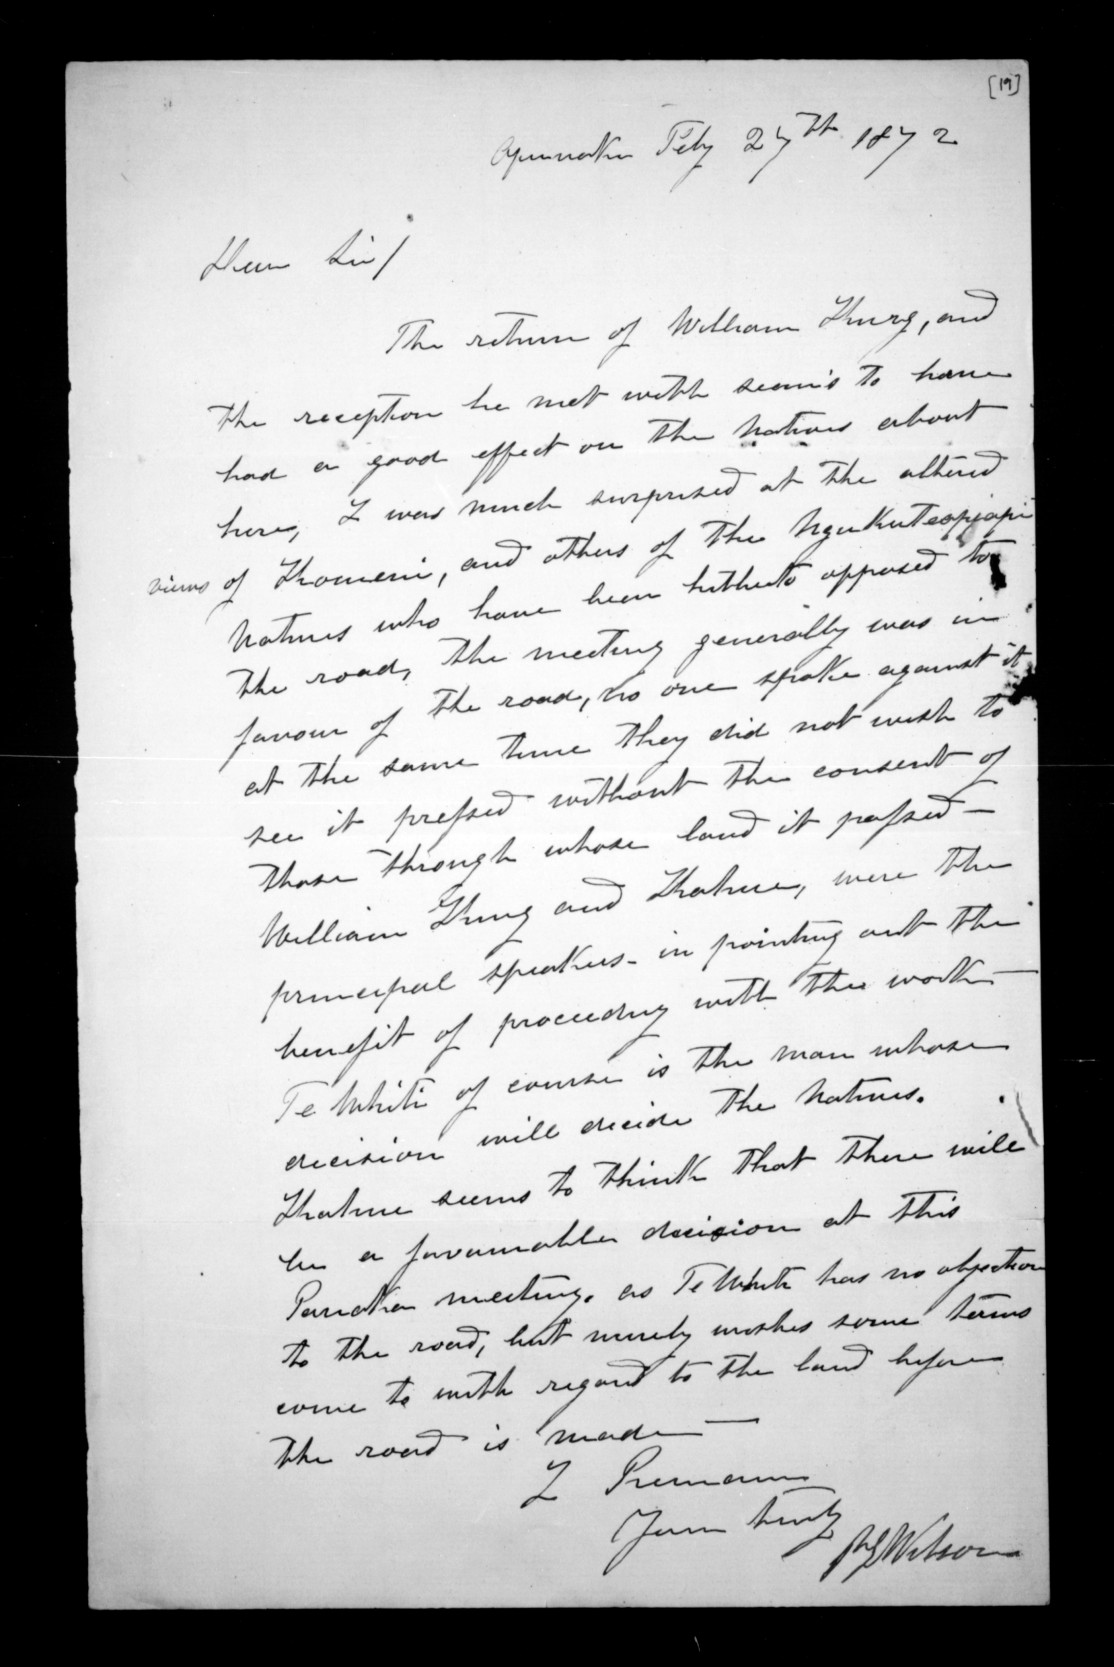 [19]
Opunake Feby 27th 1872
Dear Sir/
The return of William King, and
the reception he met with seem's to have
had a good effect on the Natives about
here, I was much surprised at the altered
views of Komeni, and others of the
Natives who have been hitherto opposed to
the road, the meeting generally was in
favour of the road, no one spoke against it
at the same time they did not wish to
see it pressed without the consent of
those through whose land it passed –
William King and Katene, were the
principal speakers – in pointing out the
benefit of proceeding with the work –
Te Whiti of course is the man whose
decision will decide the Natives.
Katene seems to think that there will
be a favourable decision at this
Parihaka meeting. as Te Whiti has no objection
to the road, but merely wishes some terms
come to with regard to the land before
the road is made –
I Remain
Yours truly
Wilson